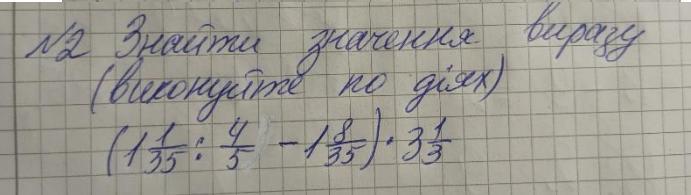 №2 Знайти значення виразу
(виконуйте по діях)
(1 1/35 : 4/5 - 1 8/35) · 3 1/3